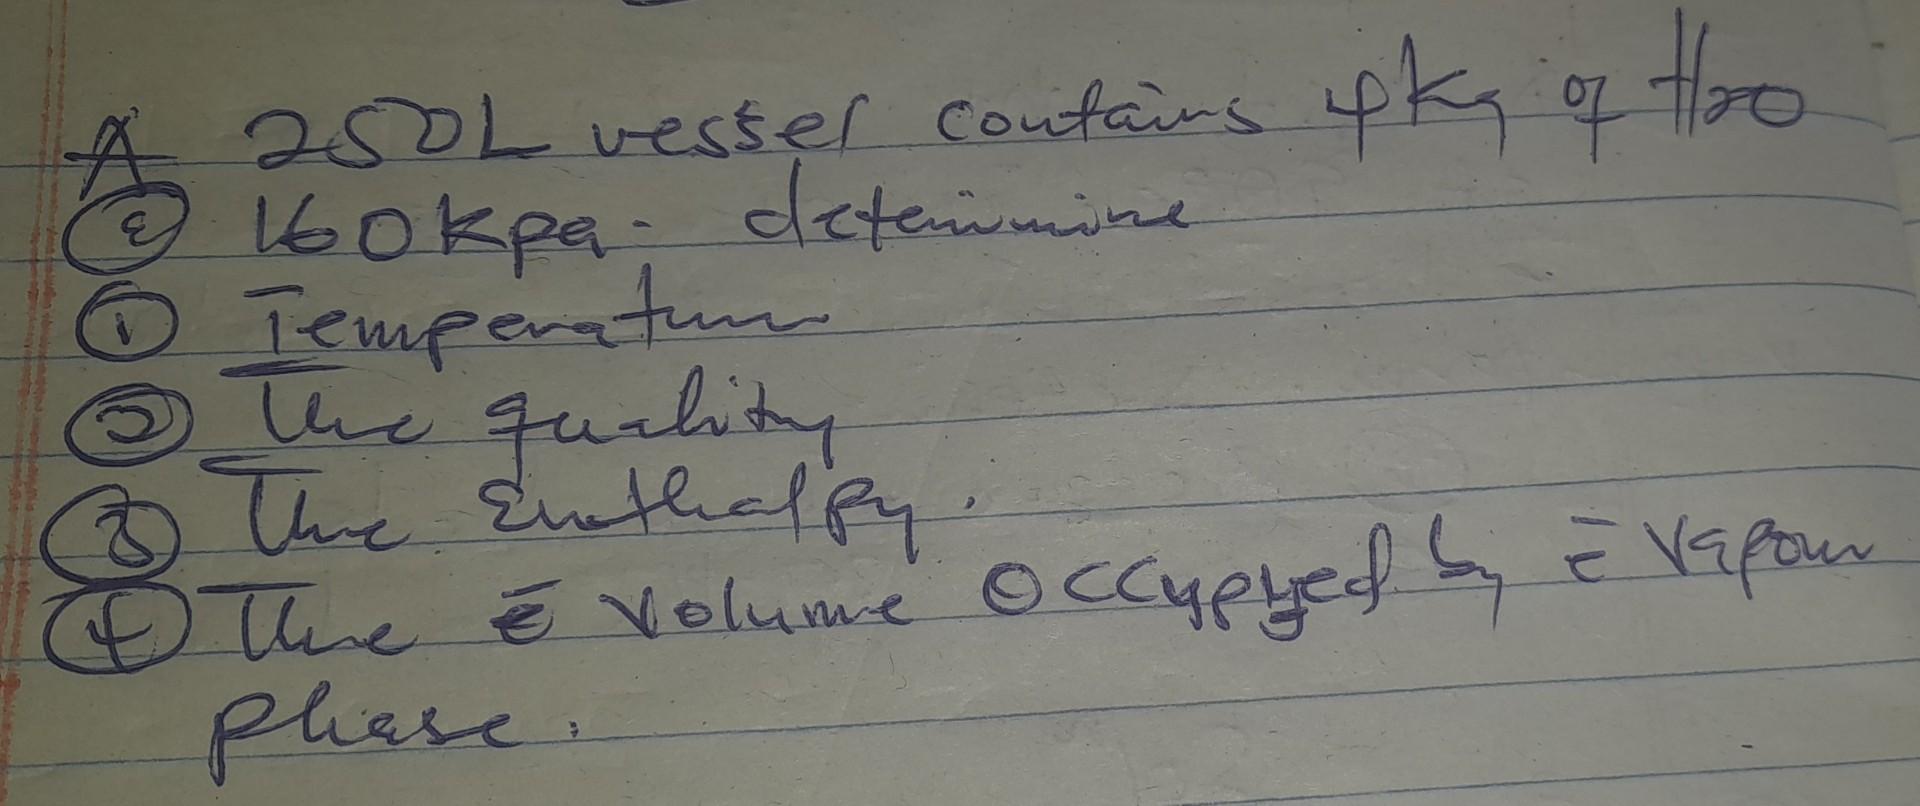 A 250L vessel contains 4kg of H20
@ 160kpa. determine
① Temperature
② The quality
③ The Enthalpy.
④ The ē volume Occupyed by ē vapour
phase.